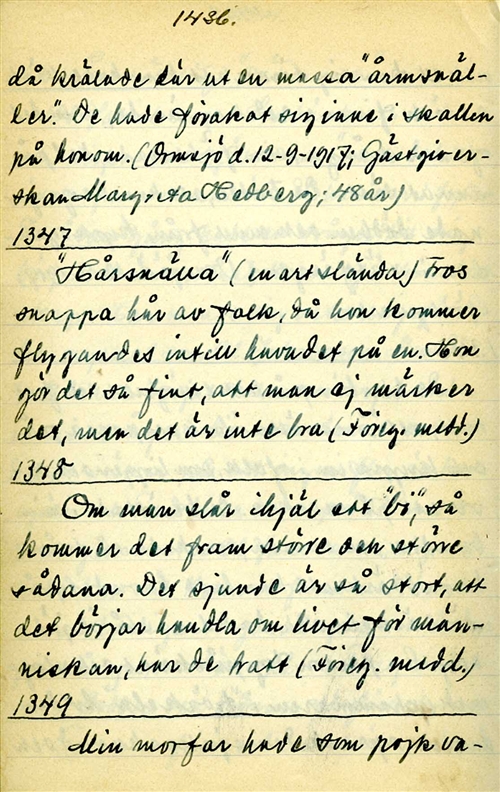 1436.
då krälade där ut en massa "årmsnäl-
ler." De hade förökat sig inne i skallen
på honom. (Ormsjö d. 12-9-1917; Gästgiver-
skan Marg:ta Hedberg; 48 år)
1347
"Hårsnälla" (en art slända) tros
snappa hår av folk, då hon kommer
flygandes intill huvudet på en. Hon
gör det så fint, att man ej märker
det, men det är inte bra (Föreg. medd.)
1348
Om man slår ihjäl ett "bi", så
kommer det fram större och större
sådana. Det sjunde är så stort, att
det börjar handla om livet för män-
niskan, har de hatt (Föreg. medd.)
1349
Min morfar hade som pojk va-